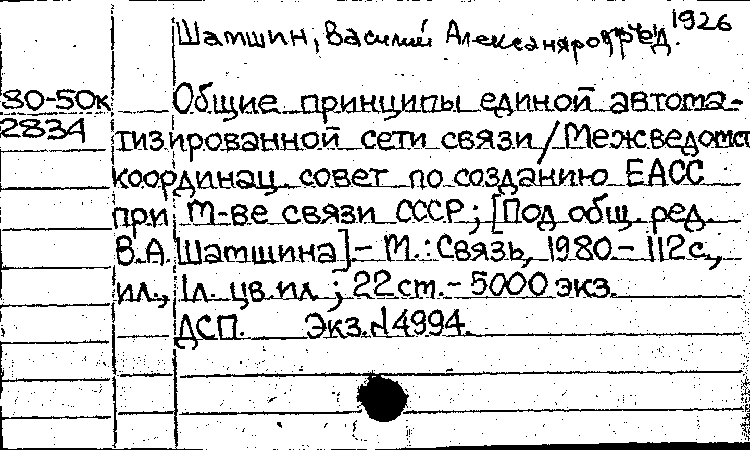 Шамшин, Василий Александрович, ред. 1926
80-50к Общие принципы единой автома-
2834 тизированной сети связи/Межведомст
координац. совет по созданию ЕАСС
при М-ве связи СССР; [Под общ. ред.
В.А. Шамшина].- М.: Связь, 1980.- 112с.,
ил., 1л. цв.ил.; 22см.- 5000 экз.
ДСП. Экз.N4994.